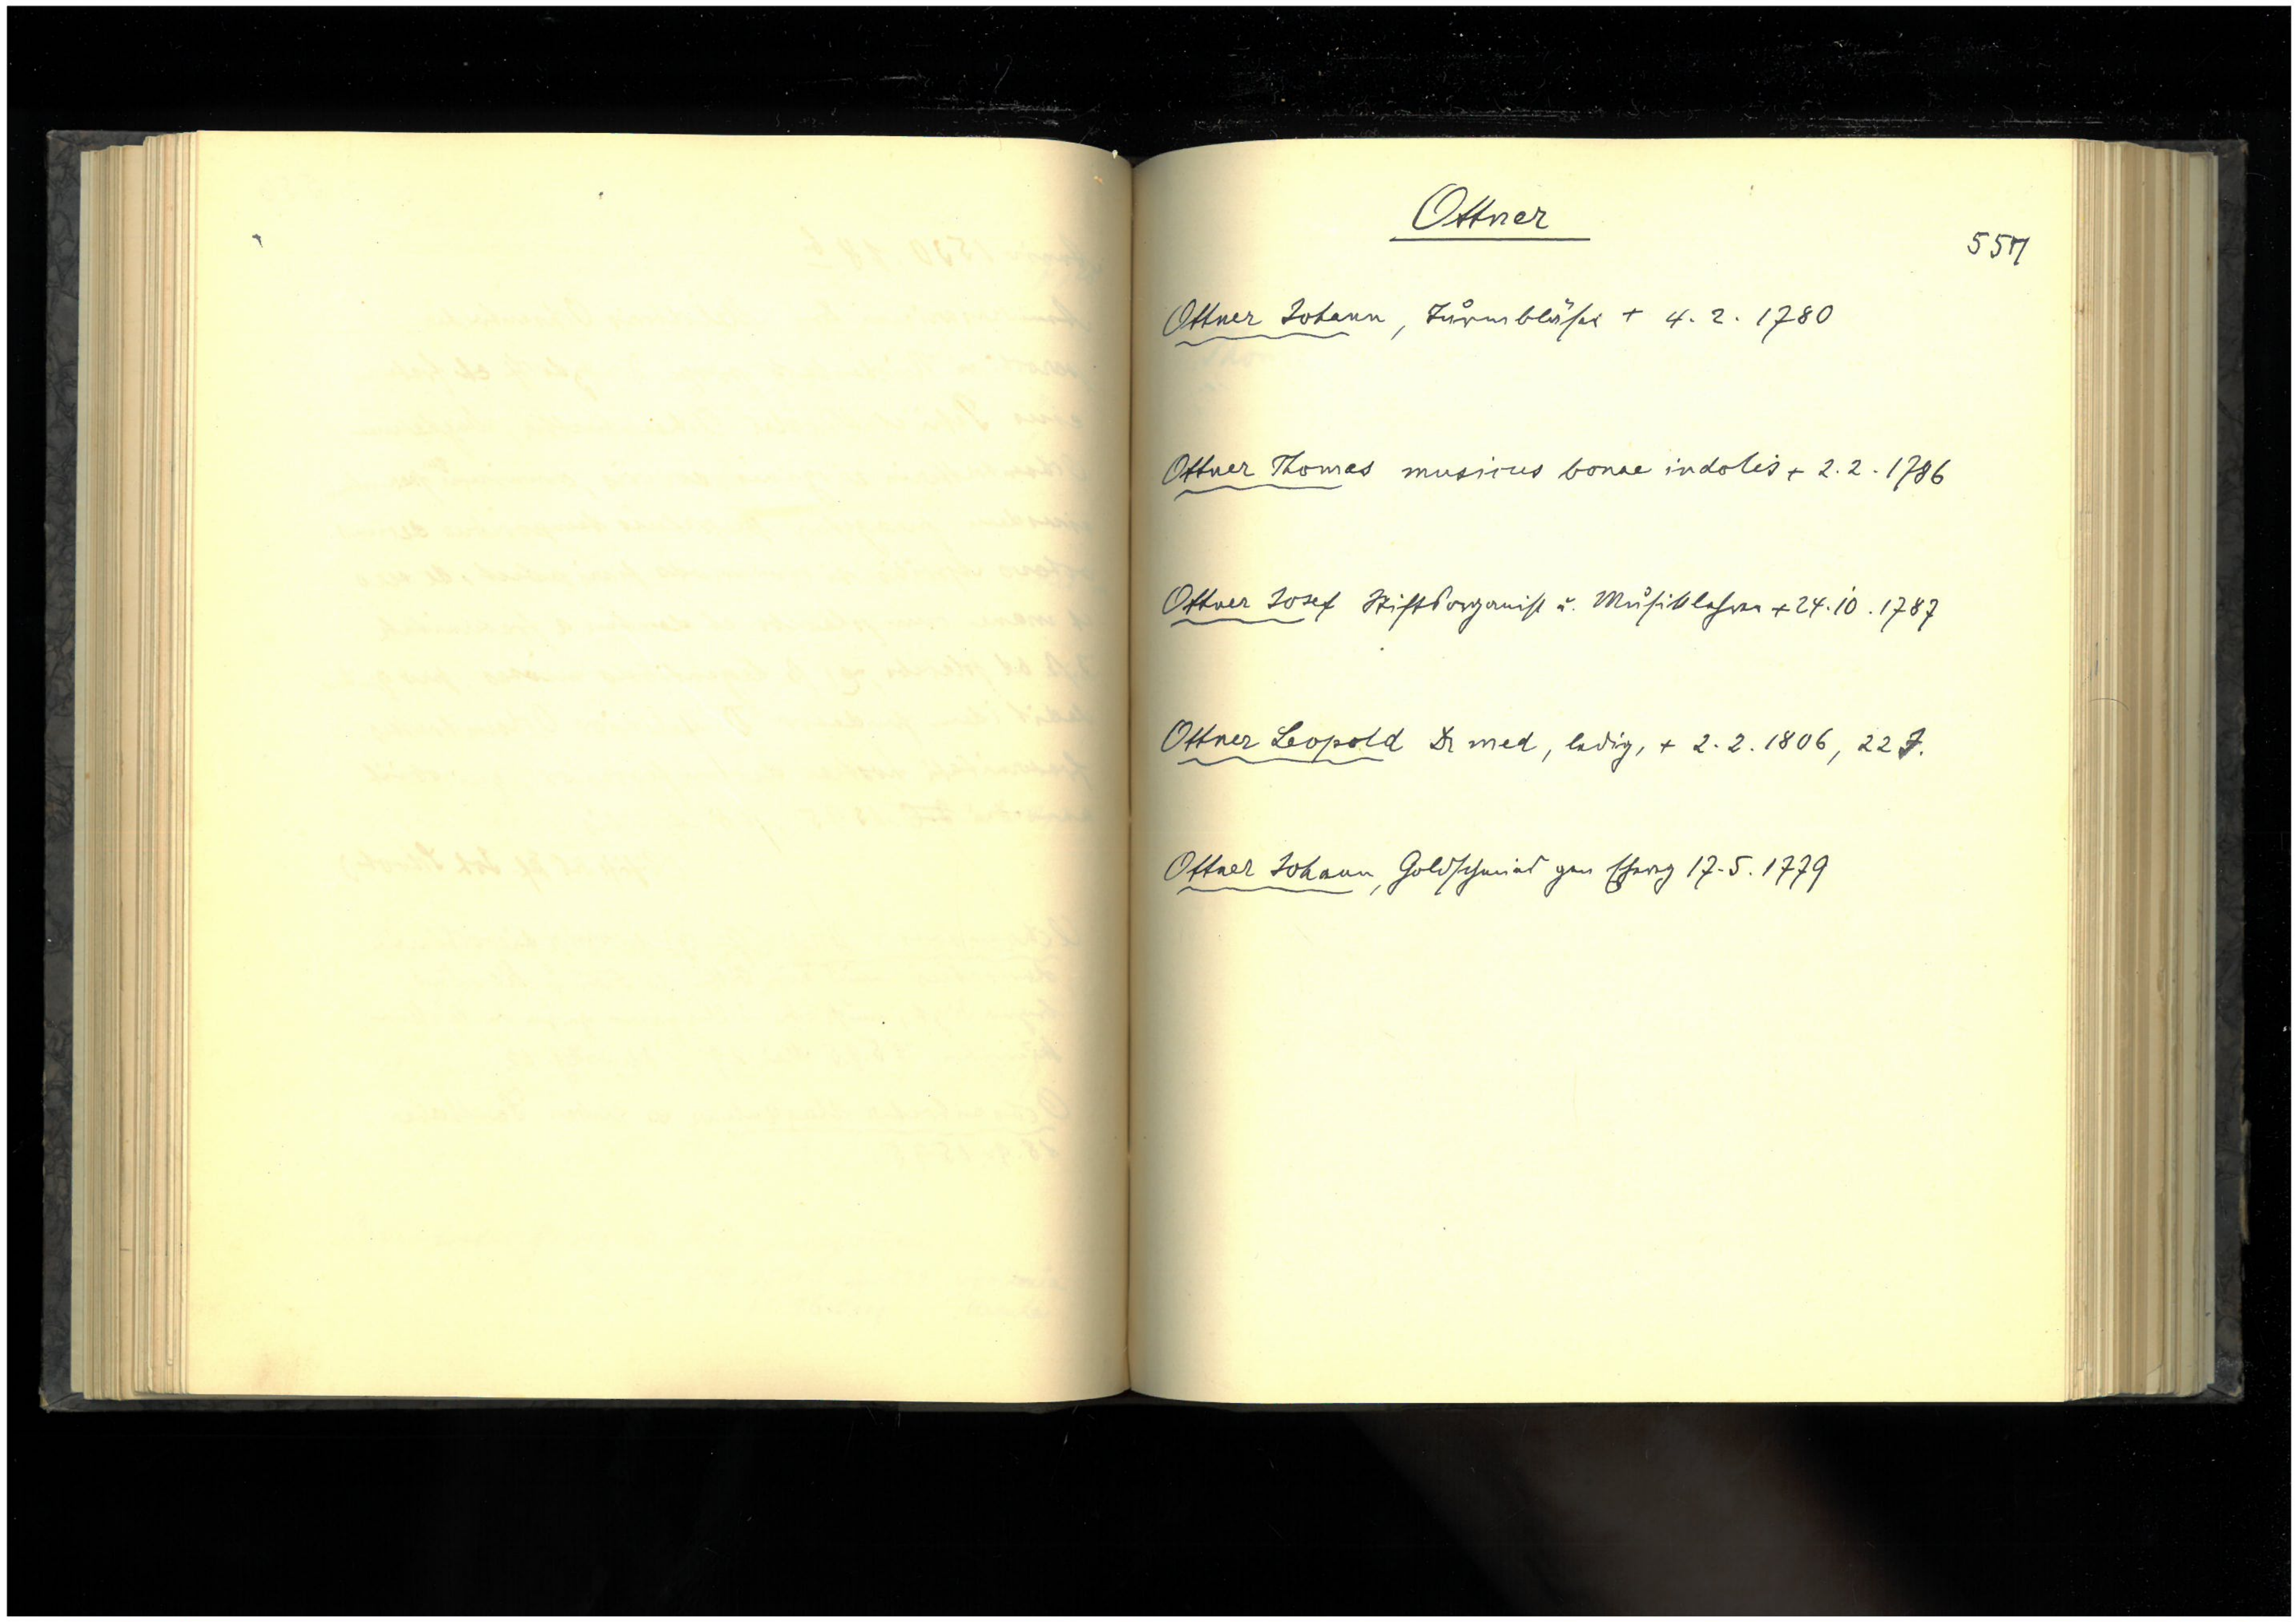 Ottner
557
Ottner Johann, Turmbläser + 4. 2. 1780
Ottner Thomas musicus bonae indolis + 2. 2. 1786
Ottner Josef Stiftsorganist u. Musiklehrer + 24. 10. 1787
Ottner Leopold Dr med, ledig, + 2. 2. 1806, 22 J.
Ottner Johann, Goldschmied 17. 5. 1779